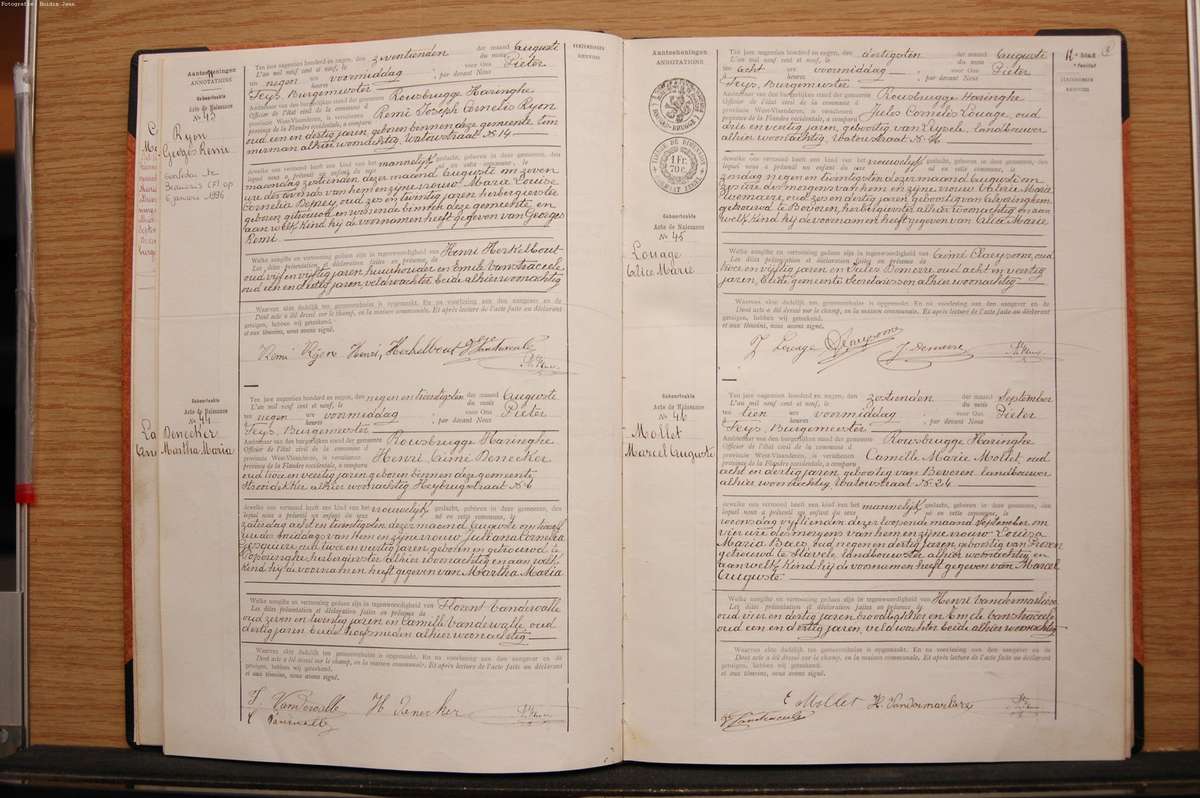 Fotografie: Boidin Jean
Aantekeningen
ANNOTATIONS
Geboorteakte
Acte de Naissance
№ 43
Ryon
Georges Remi
overleden te
Beauvais (F) op
6 januari 1996
Ten jare negentien honderd en negen, den zeventienden der maand Auguste
L'an mil neuf cent et neuf, le du mois
ten negen ure voormiddag voor Ons Pieter
heures ; par devant Nous
Feys, Burgemeester
Ambtenaar van den burgerlijken stand der gemeente Rousbrugge Haringhe
Officier de l'état civil de la commune d
provincie West-Vlaanderen, is verschenen Remi Joseph Cornelis Ryon
province de la Flandre occidentale, a comparu
oud een en dertig jaren, geboren binnen deze gemeente, tim
merman alhier woonachtig, Watoustraat N. 14
dewelke ons vertoond heeft een kind van het mannelijk geslacht, geboren in deze gemeente, den
lequel nous a présenté un enfant du sexe né en cette commune, le
maandag zestienden dezer maand Auguste om zeven
ure des avonds van hem en zijne vrouw Marie Louise
Cornelia Deprey, oud zes en twintig jaren herbergierster
geboren getrouwd en wonende binnen deze gemeente, en
aan welk kind hij de voornamen heeft gegeven van Georges
Remi
Welke aangifte en vertooning gedaan zijn in tegenwoordigheid van Henri Herkelbout
Les dites présentation et déclaration faites en présence de
oud vijf en vijftig jaren, huurhouder en Emile Vanstraceele
oud een en dertig jaren, veldwachter, beide alhier woonachtig
Waarvan akte dadelijk ten gemeentenhuize is opgemaakt. En na voorlezing aan den aangever en de
Dont acte a été dressé sur le champ, en la maison communale. Et après lecture de l'acte faite au déclarant
getuigen, hebben wij geteekend.
et aux témoins, nous avons signé.
Remi Ryon Henri, Herkelbout
Geboorteakte
Acte de Naissance
№ 44
Denecker
Martha Maria
Ten jare negentien honderd en negen, den negen en twintigsten der maand Auguste
L'an mil neuf cent et neuf, le du mois
ten negen ure voormiddag voor Ons Pieter
heures ; par devant Nous
Feys, Burgemeester
Ambtenaar van den burgerlijken stand der gemeente Rousbrugge Haringhe
Officier de l'état civil de la commune d
provincie West-Vlaanderen, is verschenen Henri Aimé Denecker
province de la Flandre occidentale, a comparu
oud twee en veertig jaren, geboren binnen deze gemeente,
Stroodekker alhier woonachtig Heybrugstraat N. 6
dewelke ons vertoond heeft een kind van het vrouwelijk geslacht, geboren in deze gemeente, den
lequel nous a présenté un enfant du sexe né en cette commune, le
zaterdag acht en twintigsten dezer maand Auguste om twaalf
ure des middags van hem en zijne vrouw Juliana Cornelia
oud twee en veertig jaren geboren en getrouwd te
Poperinghe, herbergierster alhier woonachtig en aan welk
kind hij de voornamen heeft gegeven van Martha Maria
Welke aangifte en vertooning gedaan zijn in tegenwoordigheid van Florent Vandewalle
Les dites présentation et déclaration faites en présence de
oud zeven en twintig jaren en Camille Vandewalle oud
dertig jaren beide hoefsmeden alhier woonachtig
Waarvan akte dadelijk ten gemeentenhuize is opgemaakt. En na voorlezing aan den aangever en de
Dont acte a été dressé sur le champ, en la maison communale. Et après lecture de l'acte faite au déclarant
getuigen, hebben wij geteekend.
et aux témoins, nous avons signé.
F. Vandewalle H Denecker
Aantekeningen
ANNOTATIONS
TIMBRE DE DIMENSION
1 Fr. 70 c.
Geboorteakte
Acte de Naissance
№ 45
Louage
Alice Marie
Ten jare negentien honderd en negen, den dertigsten der maand Auguste
L'an mil neuf cent et neuf, le du mois
ten acht ure voormiddag voor Ons Pieter
heures ; par devant Nous
Feys, Burgemeester
Ambtenaar van den burgerlijken stand der gemeente Rousbrugge Haringhe
Officier de l'état civil de la commune d
provincie West-Vlaanderen, is verschenen Jules Cornelis Louage, oud
province de la Flandre occidentale, a comparu
drie en veertig jaren, geboortig van Leysele, landbouwer
alhier woonachtig, Watoustraat
dewelke ons vertoond heeft een kind van het vrouwelijk geslacht, geboren in deze gemeente, den
lequel nous a présenté un enfant du sexe né en cette commune, le
zondag negen en twintigsten dezer maand Auguste om
ure des morgens van hem en zijne vrouw Valerie Marie
oud zes en dertig jaren geboortig van Alveringhem,
getrouwd te Beveren, herbergierster alhier woonachtig en aan
welk kind hij de voornamen heeft gegeven van Alice Marie
Welke aangifte en vertooning gedaan zijn in tegenwoordigheid van Aimé Claeysoone, oud
Les dites présentation et déclaration faites en présence de
twee en vijftig jaren en Jules Demeere, oud acht en veertig
jaren, beide gemeente Secretarissen alhier woonachtig
Waarvan akte dadelijk ten gemeentenhuize is opgemaakt. En na voorlezing aan den aangever en de
Dont acte a été dressé sur le champ, en la maison communale. Et après lecture de l'acte faite au déclarant
getuigen, hebben wij geteekend.
et aux témoins, nous avons signé.
J. Louage Claeysoone J. Demeere
Geboorteakte
Acte de Naissance
№ 46
Mollet
Marcel Auguste
Ten jare negentien honderd en negen, den zestienden der maand September
L'an mil neuf cent et neuf, le du mois
ten tien ure voormiddag voor Ons Pieter
heures ; par devant Nous
Feys, Burgemeester
Ambtenaar van den burgerlijken stand der gemeente Rousbrugge Haringhe
Officier de l'état civil de la commune d
provincie West-Vlaanderen, is verschenen Camille Marie Mollet, oud
province de la Flandre occidentale, a comparu
acht en dertig jaren, geboortig van Beveren, landbouwer
alhier woonachtig, Watoustraat N. 24
dewelke ons vertoond heeft een kind van het mannelijk geslacht, geboren in deze gemeente, den
lequel nous a présenté un enfant du sexe né en cette commune, le
woonsdag vijftienden dezer loopende maand September, om
vier ure des morgens van hem en zijne vrouw Louisa
Maria Baes, oud negen en dertig jaren, geboortig van Proven
getrouwd te Stavele landbouwster alhier woonachtig en
aan welk kind hij de voornamen heeft gegeven van Marcel
Auguste
Welke aangifte en vertooning gedaan zijn in tegenwoordigheid van Henri Vandermarliere
Les dites présentation et déclaration faites en présence de
oud vier en dertig jaren, en Emile Vanstraceele
oud een en dertig jaren, veldwachter beide alhier woonachtig
Waarvan akte dadelijk ten gemeentenhuize is opgemaakt. En na voorlezing aan den aangever en de
Dont acte a été dressé sur le champ, en la maison communale. Et après lecture de l'acte faite au déclarant
getuigen, hebben wij geteekend.
et aux témoins, nous avons signé.
C Mollet H. Vandermarliere